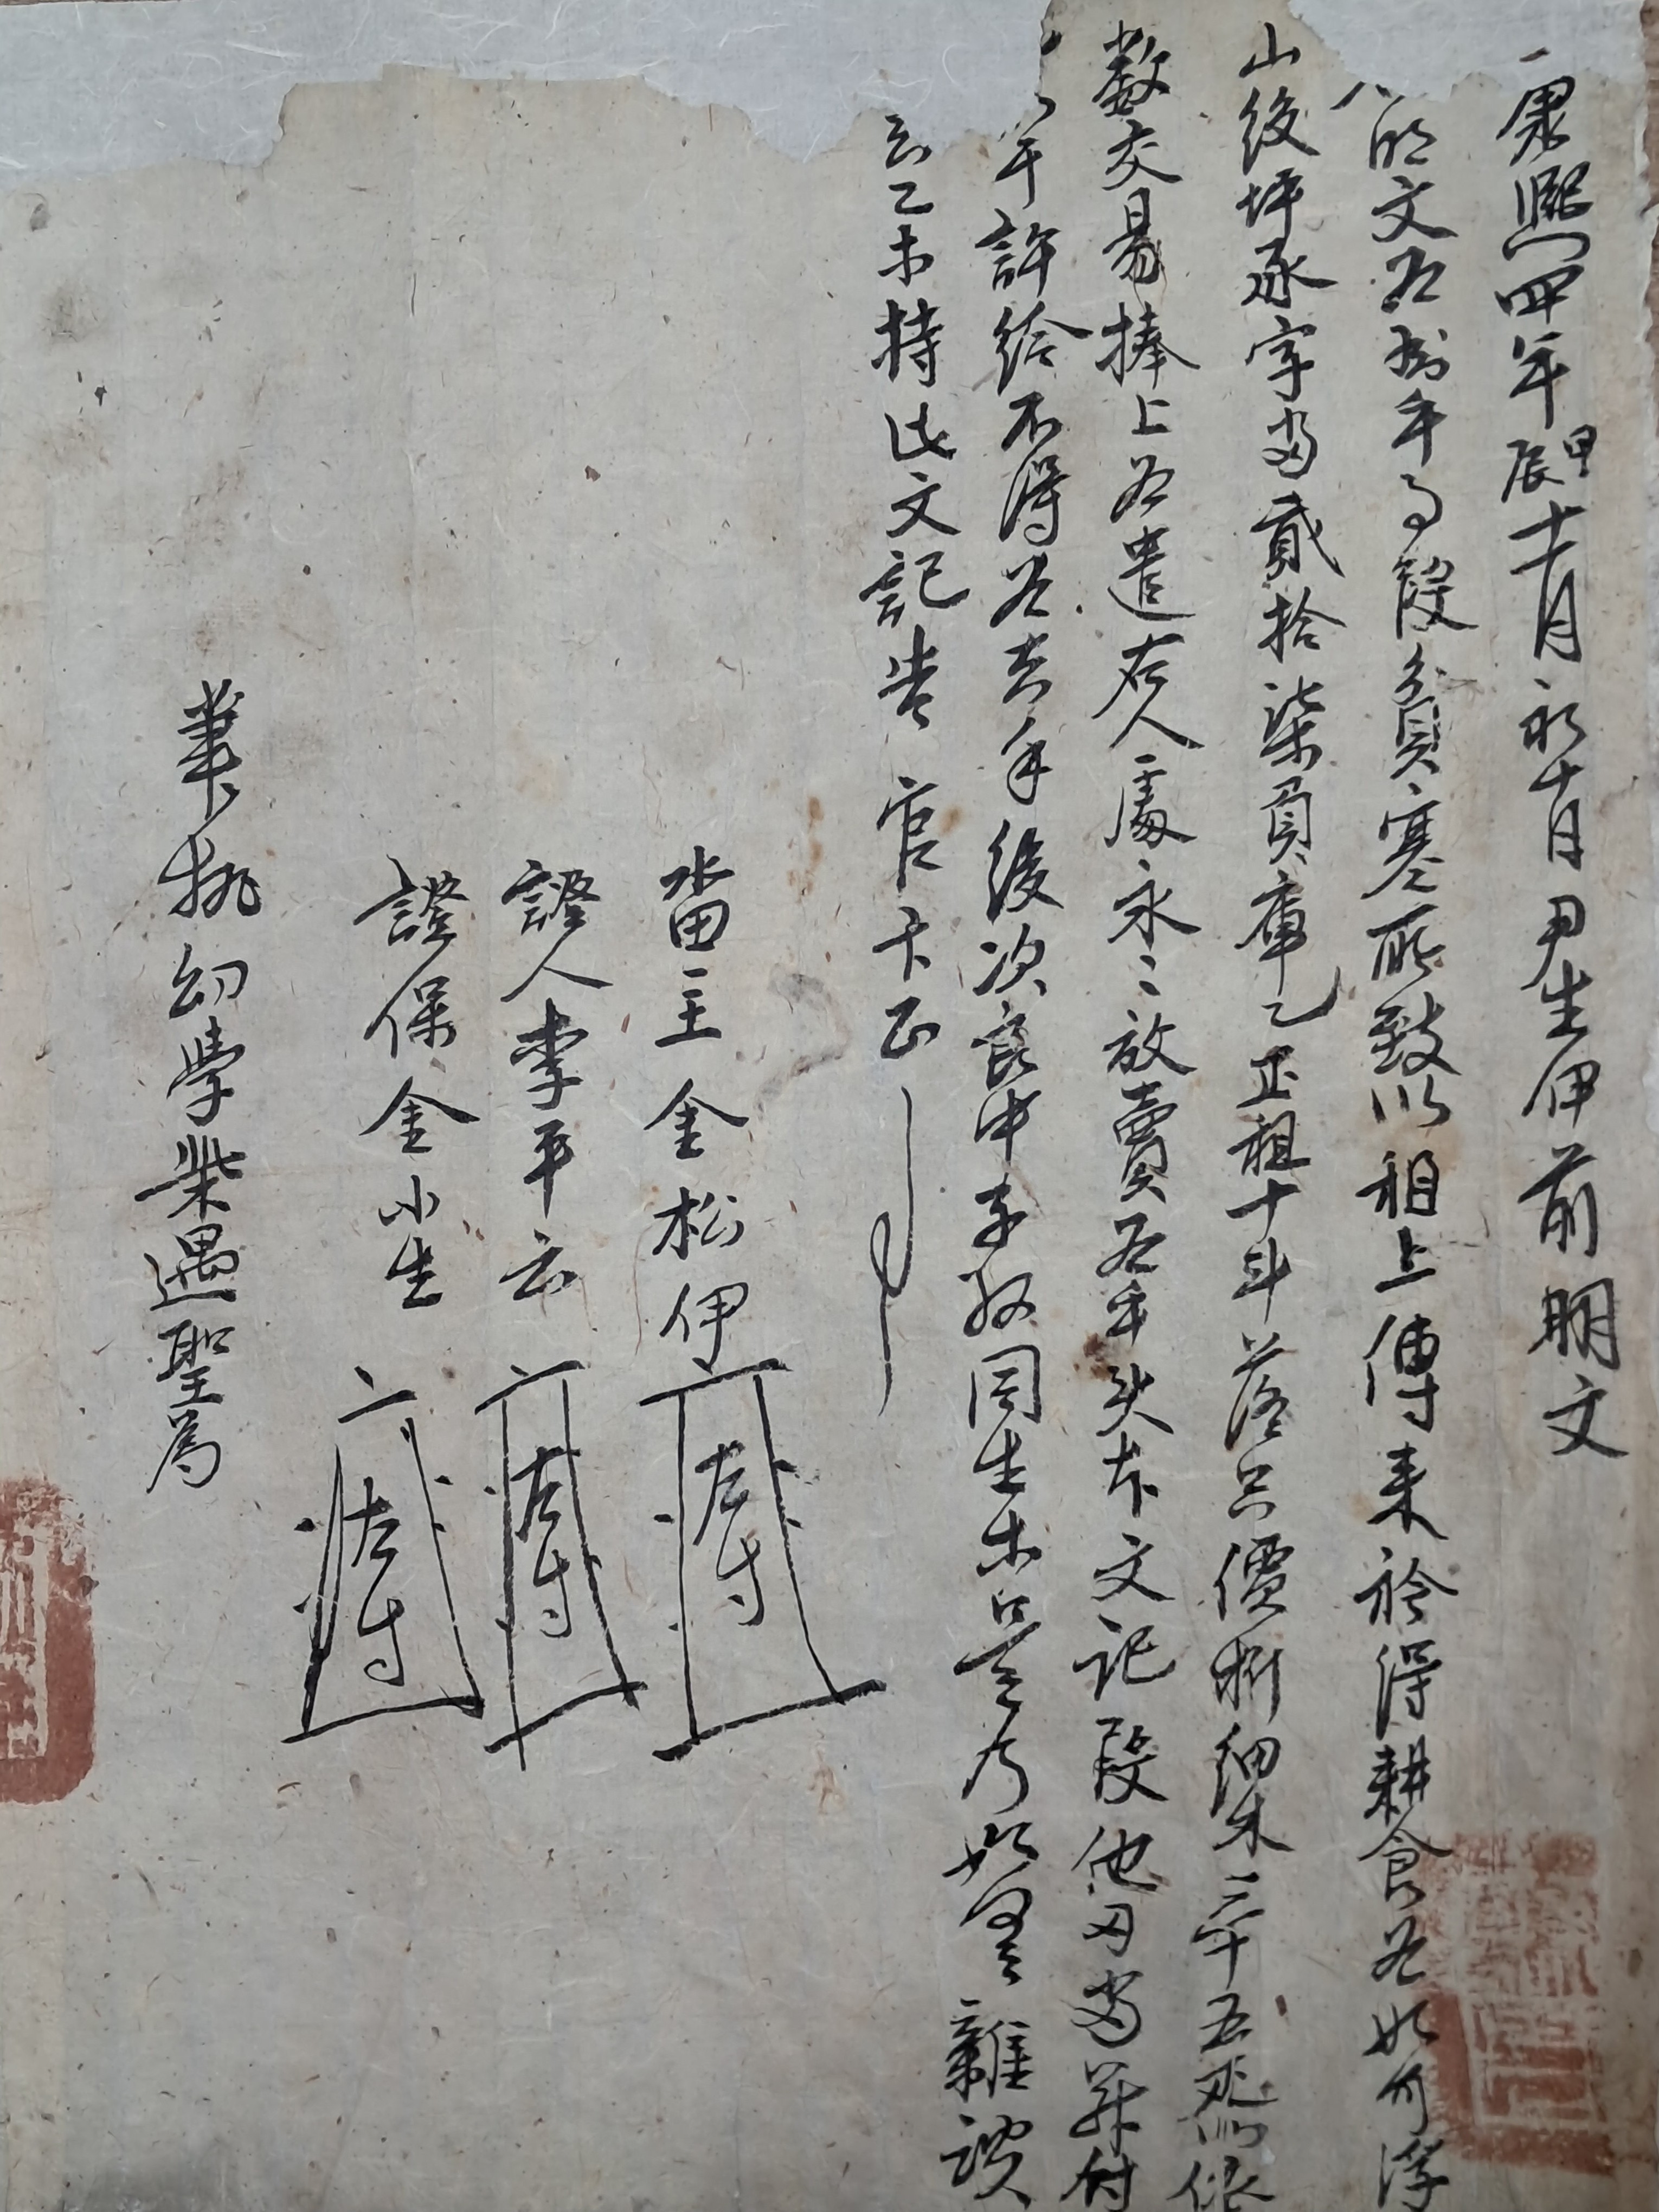 康熙四年甲辰十一月初十日尹生伊前明文
明文爲臥乎事段貧寒所致以祖上傳來衿得耕食爲如可深
山後坪逐字畓貳拾柒負庫乙正租十斗落只價折細木三十五疋依
數交易捧上爲遣右人處永永放賣爲乎矣本文記段他田畓幷付
許給不得爲去乎後次良中子孫同生等是乃如有雜談
去乙等持此文記告官卞正
畓主金松伊 左寸
證人李平云 左寸
證保金小生 左寸
筆執幼學柴遇聖